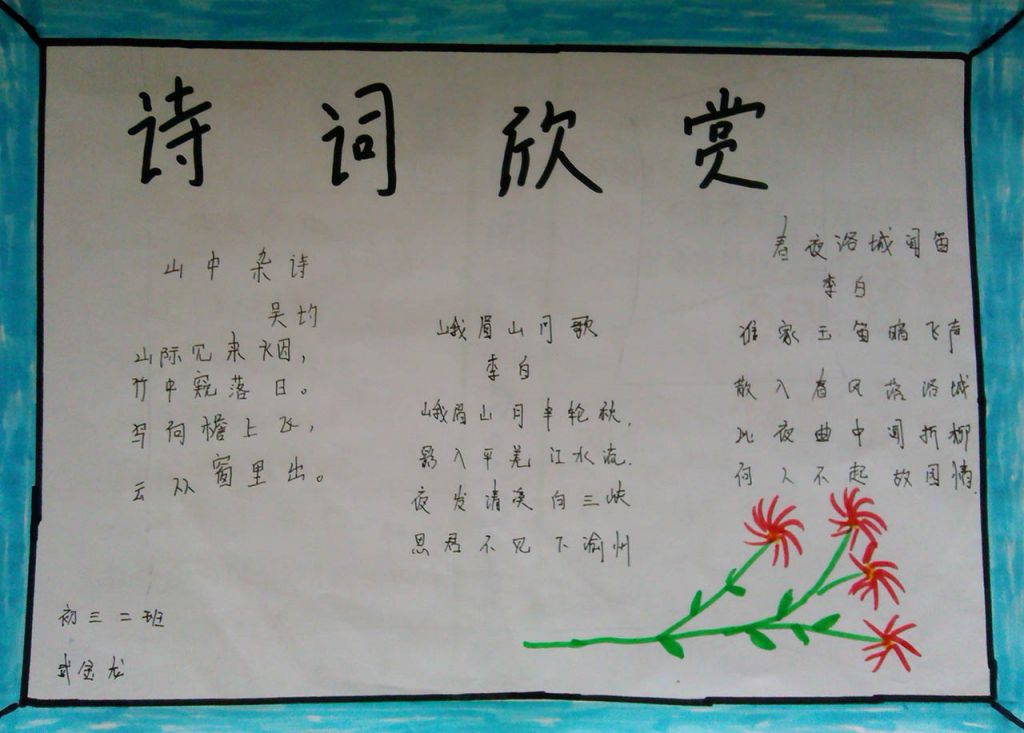 诗词欣赏
山中杂诗
吴均
山际见来烟，
竹中窥落日。
鸟向檐上飞，
云从窗里出。
峨眉山月歌
李白
峨眉山月半轮秋，
影入平羌江水流.
夜发清溪向三峡
思君不见下渝州
春夜洛城闻笛
李白
谁家玉笛暗飞声
散入春风落洛城
此夜曲中闻折柳
何人不起故园情.
初三二班
武金龙